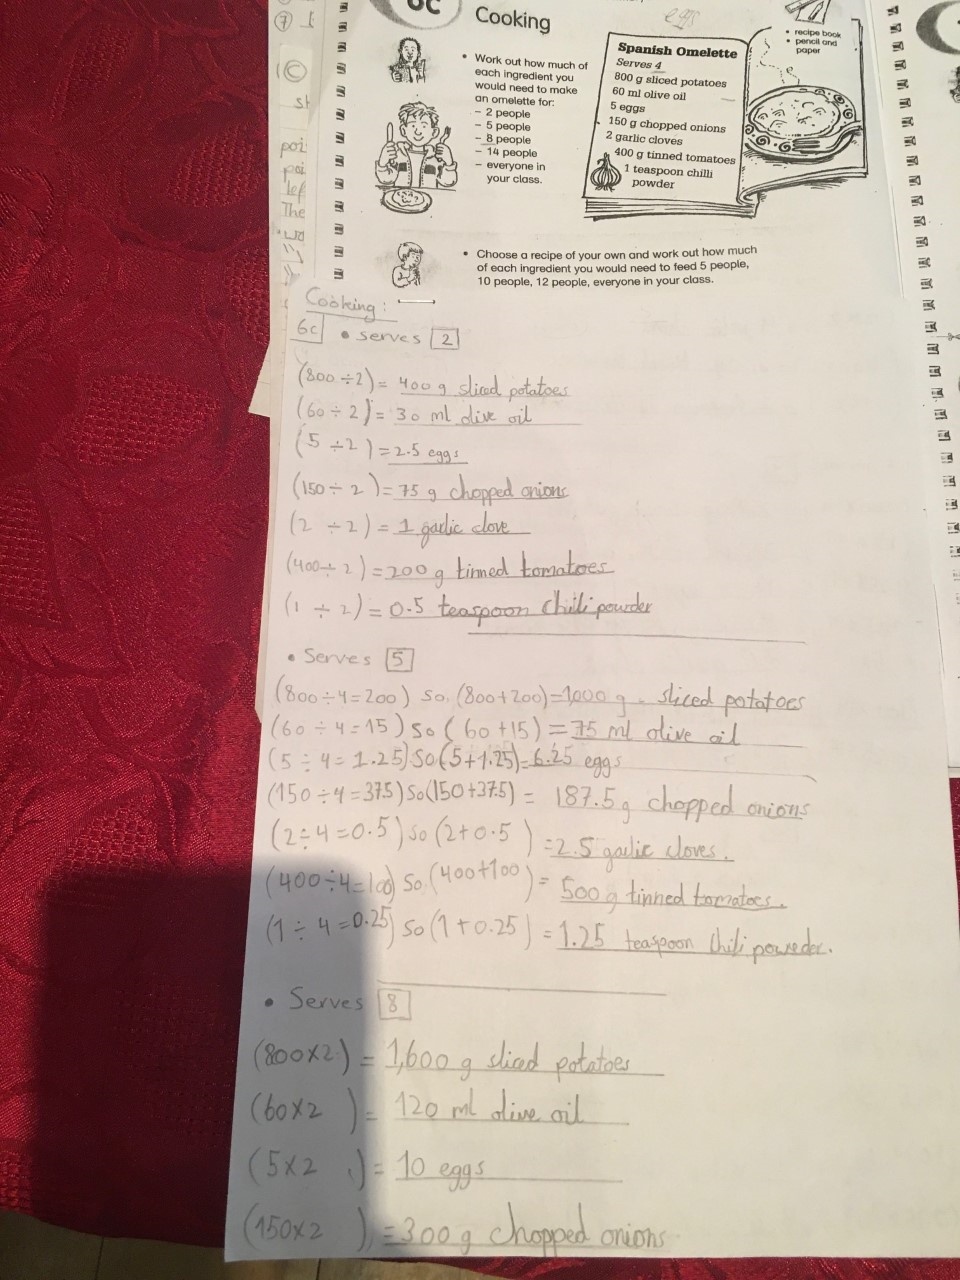 6C
Cooking
eggs
• recipe book
• pencil and
paper
• Work out how much of
each ingredient you
would need to make
an omelette for:
– 2 people
– 5 people
– 8 people
– 14 people
– everyone in
your class.
Spanish Omelette
Serves 4
800 g sliced potatoes
60 ml olive oil
5 eggs
150 g chopped onions
2 garlic cloves
400 g tinned tomatoes
1 teaspoon chilli
powder
• Choose a recipe of your own and work out how much
of each ingredient you would need to feed 5 people,
10 people, 12 people, everyone in your class.
Cooking:
6c • serves 2
(800 ÷ 2) = 400 g sliced potatoes
(60 ÷ 2) = 30 ml olive oil
(5 ÷ 2) = 2.5 eggs
(150 ÷ 2) = 75 g chopped onions
(2 ÷ 2) = 1 garlic clove
(400 ÷ 2) = 200 g tinned tomatoes
(1 ÷ 2) = 0.5 teaspoon chili powder
• Serves 5
(800 ÷ 4 = 200) so (800+200) = 1000 g sliced potatoes
(60 ÷ 4 = 15) so (60 + 15) = 75 ml olive oil
(5 ÷ 4 = 1.25) so (5+1.25) = 6.25 eggs
(150 ÷ 4 = 37.5) so (150+37.5) = 187.5 g chopped onions
(2 ÷ 4 = 0.5) so (2+0.5) = 2.5 garlic cloves.
(400 ÷ 4 = 100) so (400+100) = 500 g tinned tomatoes.
(1 ÷ 4 = 0.25) so (1 + 0.25) = 1.25 teaspoon chili poweder.
• Serves 8
(800x2) = 1,600 g sliced potatoes
(60x2) = 120 ml olive oil
(5x2) = 10 eggs
(150x2) = 300 g chopped onions